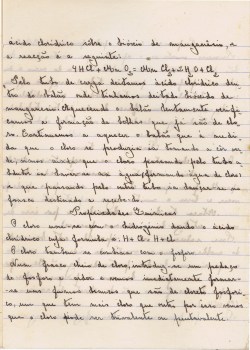 ácido clorídico sôbre o bióxio de manganésio, a
a reacção é a seguinte:
4HCl + MnO2 = MnCl2 + 2H2O + Cl2
Pelo tubo de carga deitamos ácido clorídico den-
tro do balão onde tinhamos deitado bióxido de
manganésio. Aquecendo o balão lentamente verifi-
camos a formação de bolhas que já são de clo-
ro. Continuamos a aquecer o balão que à medi-
da que o cloro se produzia ia tomando a côr ver-
de, vimos ainda que o cloro passando pelo tudo a
dentro se
e que passando pelo outro tubo ia
fossa destinado a recebê-lo.
Propriedades Químicas
O cloro uni-se com o hidrogénio dando o ácido
clorídico cuja formula é: H + Cl = HCl
O cloro tambem se combina com o fosforo
Num frasco cheio de cloro, introduz-se um pedaço
de fosforo a arder e vemos imediatamente formar-
se uns fumos brancos que são de cloreto fosfóri-
co, um que tem mais cloro que outro por isso vimos
que o cloro pode ser trivalente ou pentavalente.